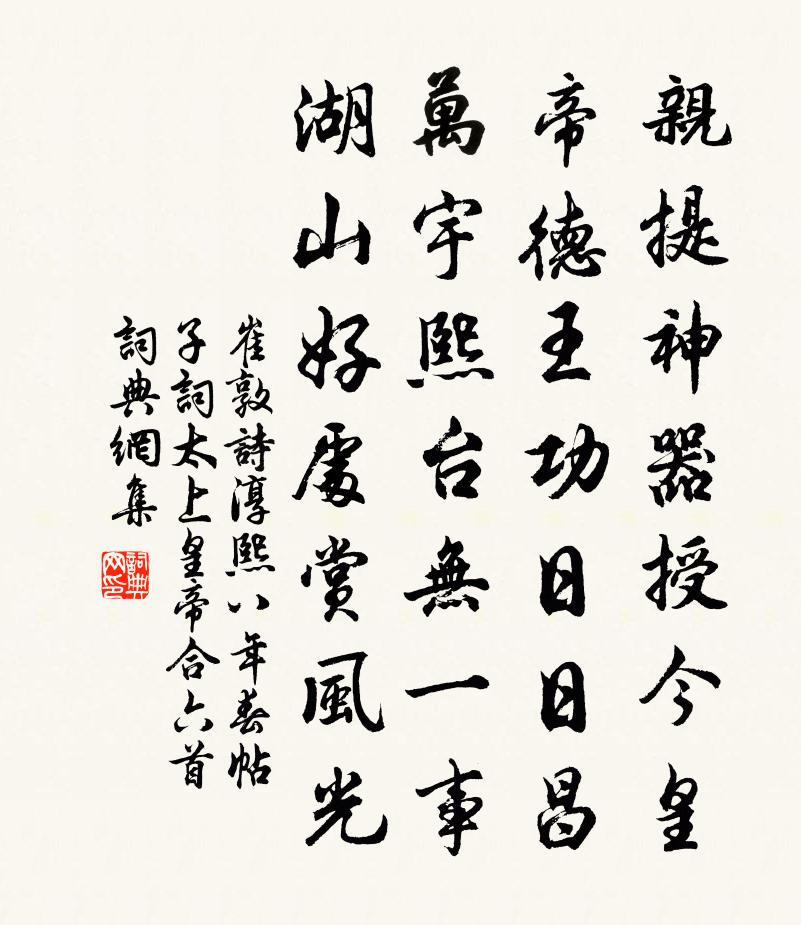 親提神器授今皇
帝德王功日日昌
萬宇熙台無一事
湖山好處賞風光
崔敦詩淳熙八年春帖
子詞太上皇帝合六首
詞典網集
詞典
网印